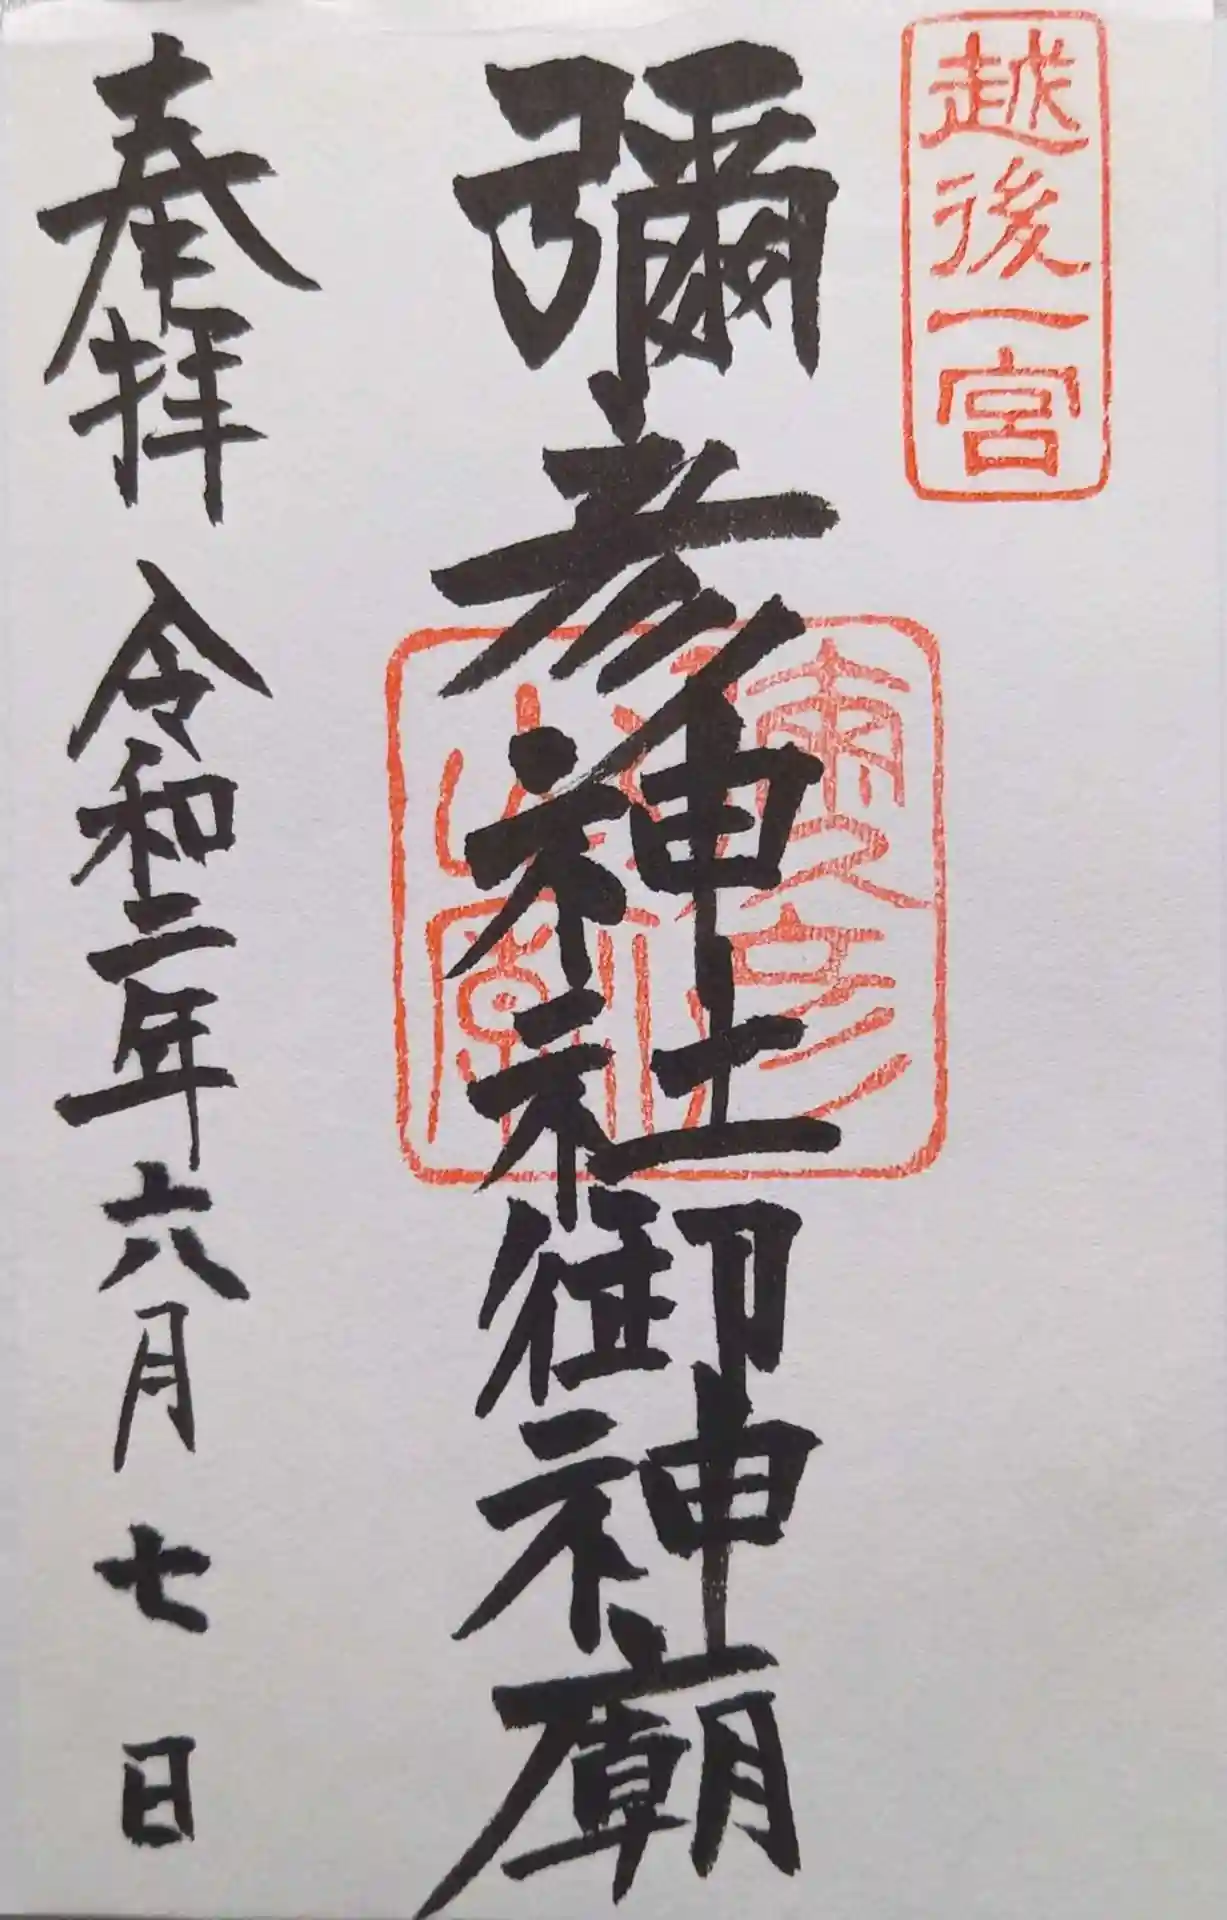 越後一宮
彌彦神社御神廟
奉拝 令和二年六月七日